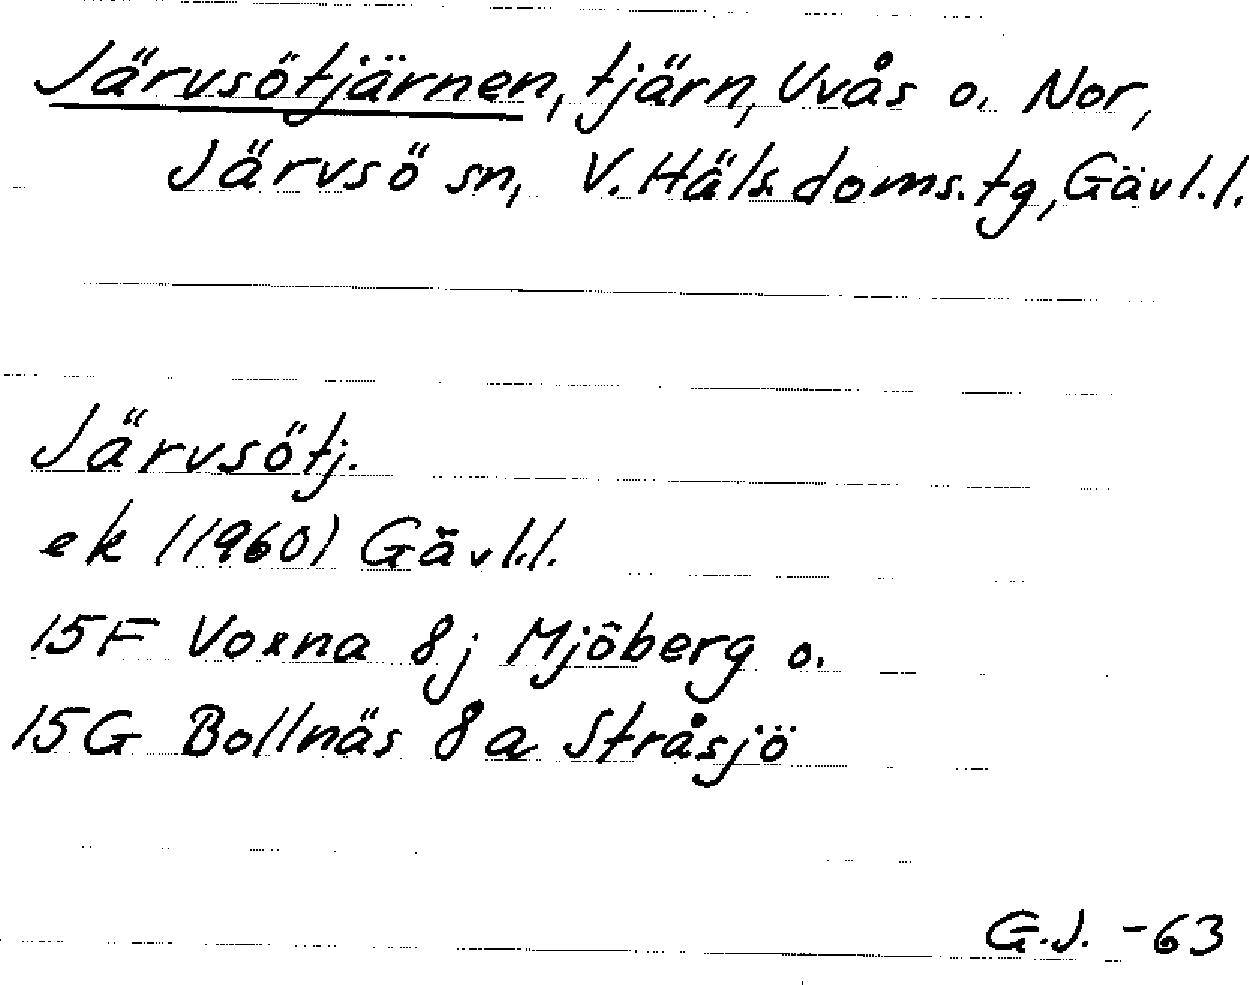 Järvsötjärnen, tjärn, Uvås o. Nor,
Järvsö sn, V. Häls. doms. tg, Gävl. l.
Järvsötj.
ek (1960) Gävl. l.
15F Voxna 8j Mjöberg o.
15G Bollnäs 8a Stråsjö
G.J. -63